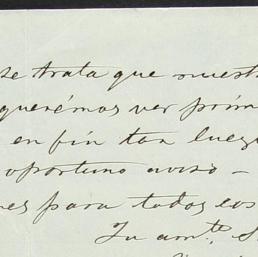 se trata que nuest
querémos ver prim
en fin tan lueg
oportuno aviso —
es para todos
Tu amᵗᵒ. S